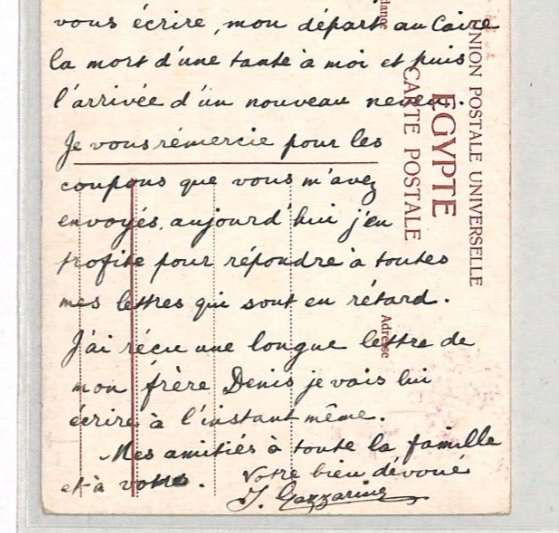 vous écrire, mon départ au Caire
la mort d'une tante à moi et puis
l'arrivée d'un nouveau neveu.
Je vous rémercie pour les
coupons que vous m'avez
envoyés, aujourd'hui j'en
profite pour répondre à toutes
mes lettres qui sont en rétard.
J'ai réçu une longue lettre de
mon frère Denis je vais lui
écrire à l'instant même.
Mes amitiés à toute la famille
et à vous.
Votre bien dévoué
UNION POSTALE UNIVERSELLE
EGYPTE
CARTE POSTALE
Adresse